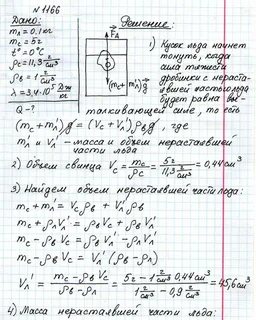 № 1166
Дано:
Решение:
m₁ = 0,1 кг
m_c = 5 г
t° = 0°C
ρ_c = 11,3 г/см³
ρ_в = 1 г/см³
λ = 3,4·10⁵ Дж/кг
Q - ?
F_A
(m_c + m_л')g
1) Кусок льда начнет
тонуть, когда
сила тяжести
дробинки с нераста-
явшей частью льда
будет равна вы-
талкивающей силе, то есть
(m_c + m_л')g = (V_c + V_л')ρ_в g, где
m_л' и V_л' - масса и объем нерастаявшей
части льда
2) Объем свинца V_c = m_c/ρ_c = 5г/11,3 г/см³ = 0,44 см³
3) Найдем объем нерастаявшей части льда:
m_c + m_л' = V_c ρ_в + V_л' ρ_в
m_c + ρ_л V_л' = ρ_в V_c + ρ_в V_л'
m_c - ρ_в V_c = ρ_в V_л' - ρ_л V_л'
m_c - ρ_в V_c = V_л' (ρ_в - ρ_л)
V_л' = (m_c - ρ_в V_c)/(ρ_в - ρ_л) = (5г - 1 г/см³ 0,44 см³)/(1 г/см³ - 0,9 г/см³) = 45,6 см³
4) Масса нерастаявшей части льда: